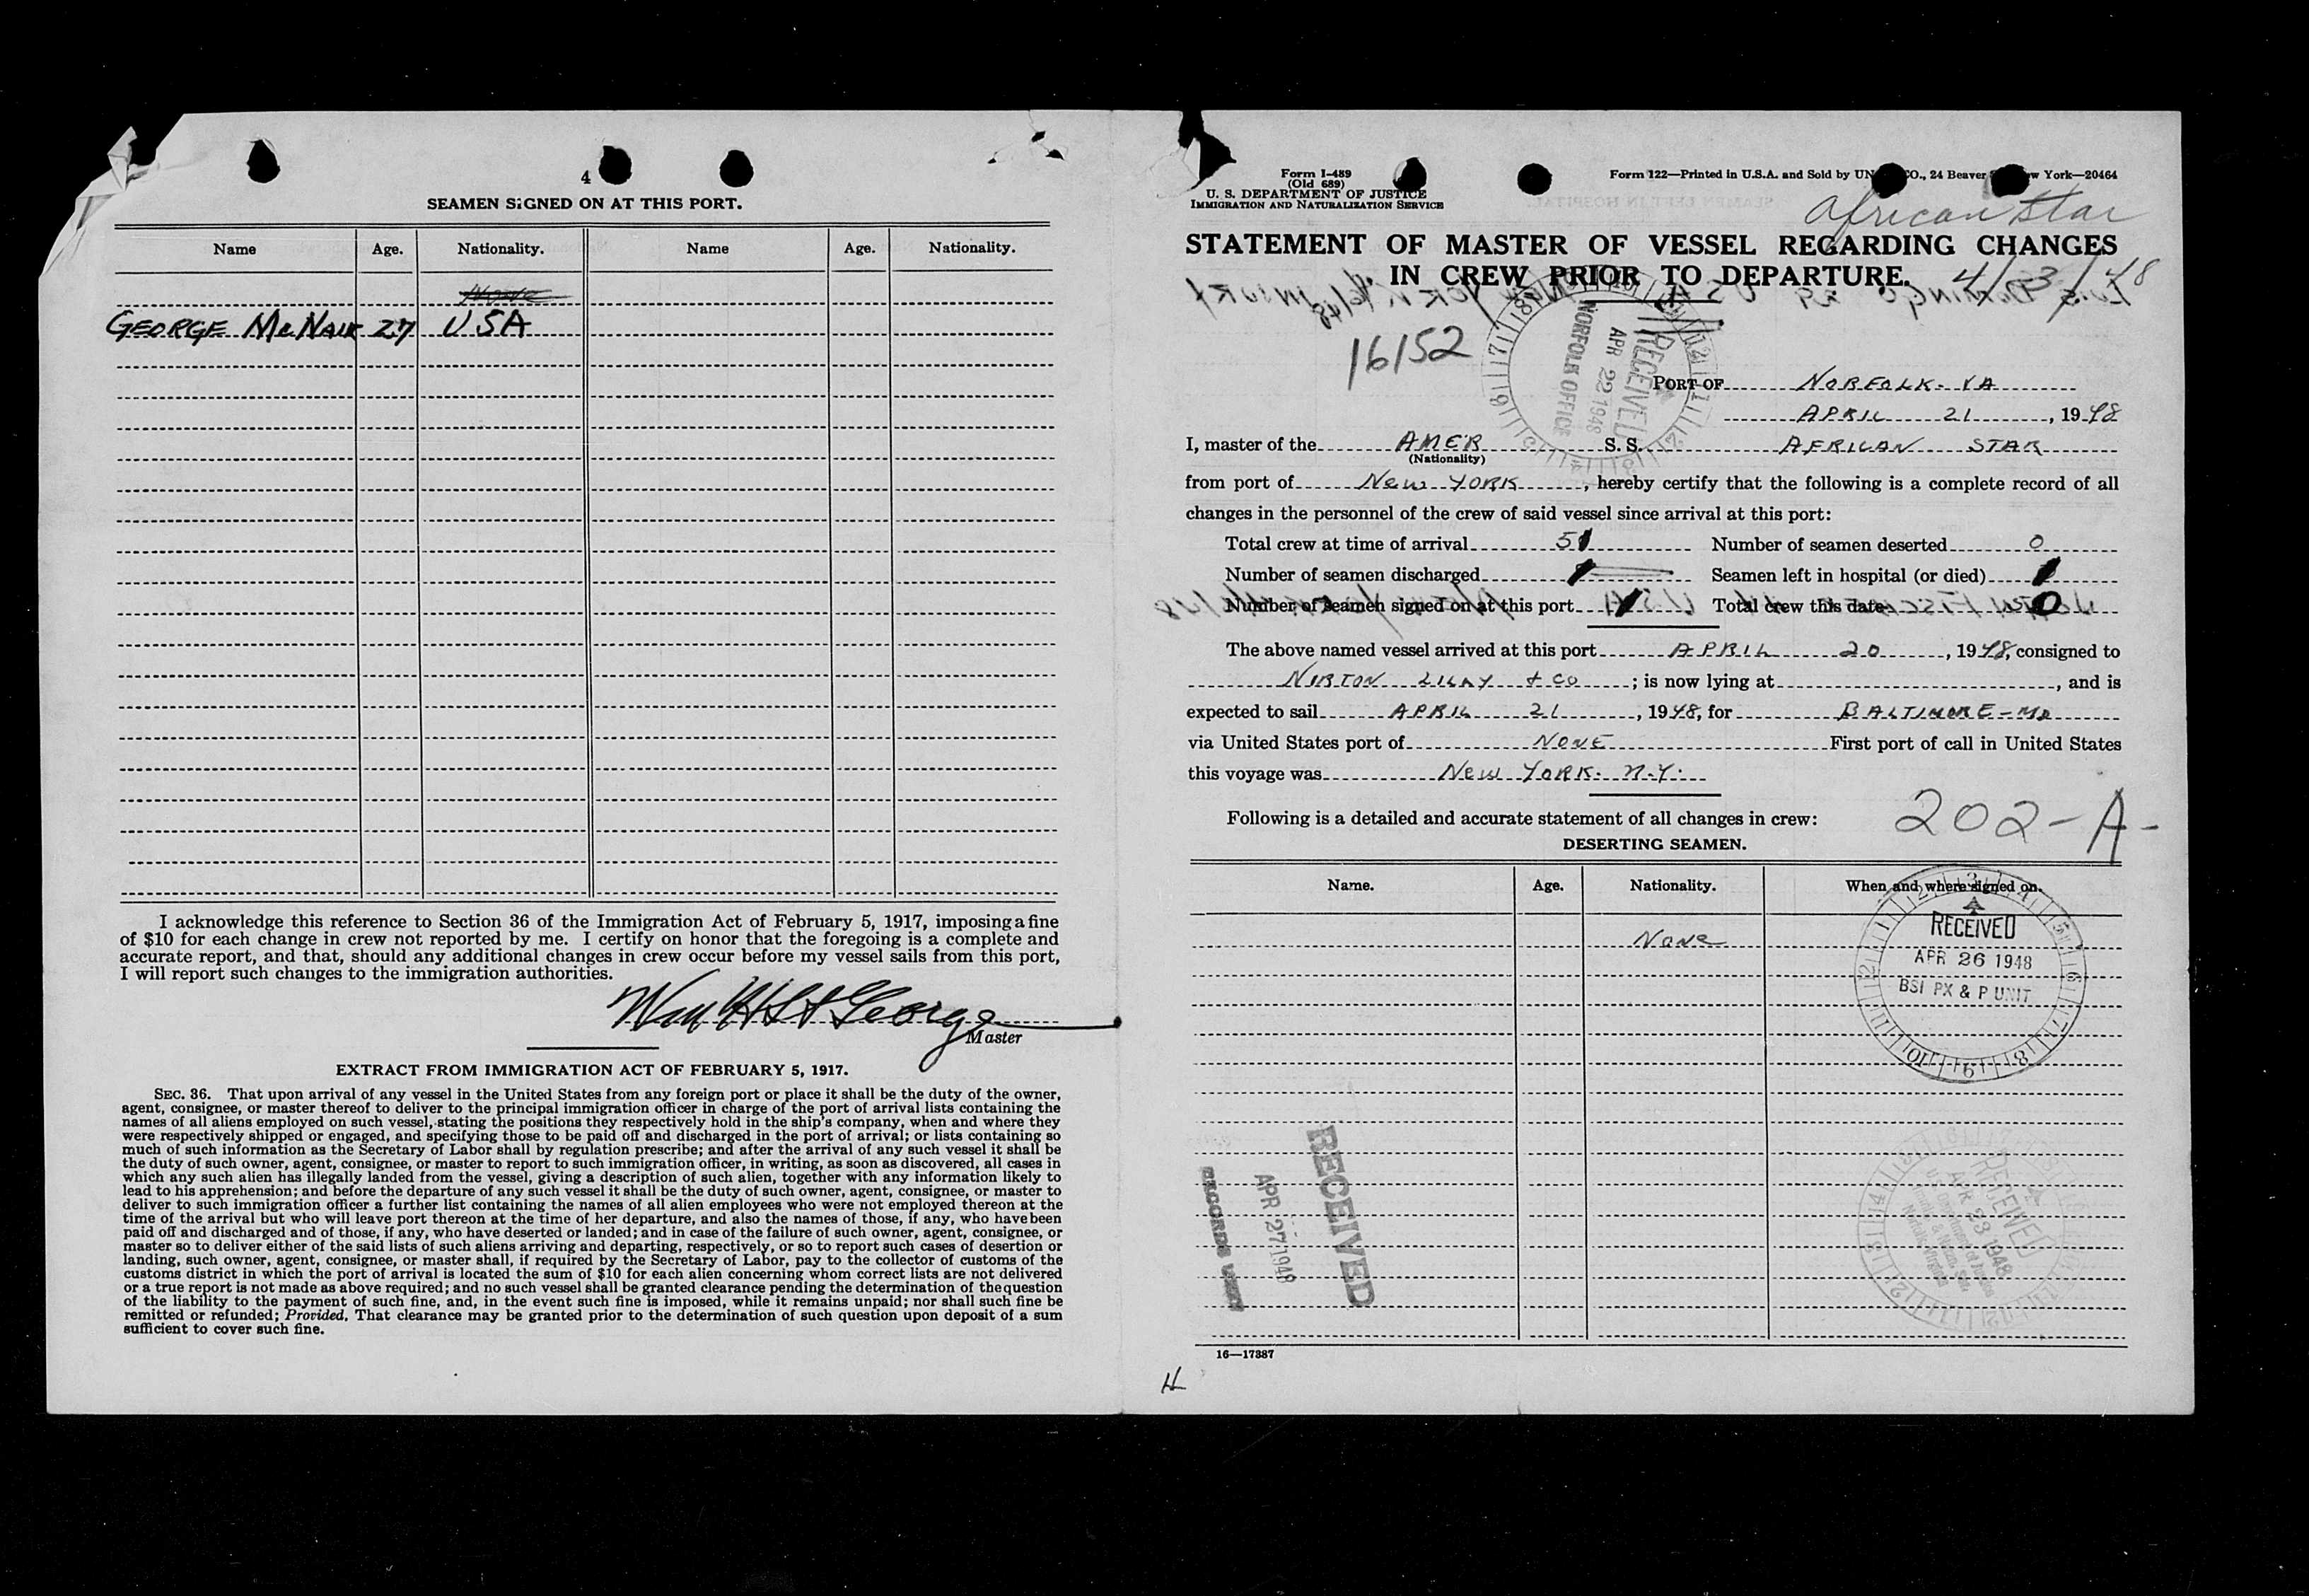 4
SEAMEN SIGNED ON AT THIS PORT.
Name Age. Nationality. Name Age. Nationality.
None
GEORGE McNAIR 27 USA
I acknowledge this reference to Section 36 of the Immigration Act of February 5, 1917, imposing a fine
of $10 for each change in crew not reported by me. I certify on honor that the foregoing is a complete and
accurate report, and that, should any additional changes in crew occur before my vessel sails from this port,
I will report such changes to the immigration authorities.
Wm H St George
Master
EXTRACT FROM IMMIGRATION ACT OF FEBRUARY 5, 1917.
SEC. 36. That upon arrival of any vessel in the United States from any foreign port or place it shall be the duty of the owner,
agent, consignee, or master thereof to deliver to the principal immigration officer in charge of the port of arrival lists containing the
names of all aliens employed on such vessel, stating the positions they respectively hold in the ship's company, when and where they
were respectively shipped or engaged, and specifying those to be paid off and discharged in the port of arrival; or lists containing so
much of such information as the Secretary of Labor shall by regulation prescribe; and after the arrival of any such vessel it shall be
the duty of such owner, agent, consignee, or master to report to such immigration officer, in writing, as soon as discovered, all cases in
which any such alien has illegally landed from the vessel, giving a description of such alien, together with any information likely to
lead to his apprehension; and before the departure of any such vessel it shall be the duty of such owner, agent, consignee, or master to
deliver to such immigration officer a further list containing the names of all alien employees who were not employed thereon at the
time of the arrival but who will leave port thereon at the time of her departure, and also the names of those, if any, who have been
paid off and discharged and of those, if any, who have deserted or landed; and in case of the failure of such owner, agent, consignee, or
master so to deliver either of the said lists of such aliens arriving and departing, respectively, or so to report such cases of desertion or
landing, such owner, agent, consignee, or master shall, if required by the Secretary of Labor, pay to the collector of customs of the
customs district in which the port of arrival is located the sum of $10 for each alien concerning whom correct lists are not delivered
or a true report is not made as above required; and no such vessel shall be granted clearance pending the determination of the question
of the liability to the payment of such fine, and, in the event such fine is imposed, while it remains unpaid; nor shall such fine be
remitted or refunded; Provided, That clearance may be granted prior to the determination of such question upon deposit of a sum
sufficient to cover such fine.
Form I-489
(Old 689)
U. S. DEPARTMENT OF JUSTICE
IMMIGRATION AND NATURALIZATION SERVICE
Form 122—Printed in U.S.A. and Sold by UN CO., 24 Beaver w York—20464
African Star
STATEMENT OF MASTER OF VESSEL REGARDING CHANGES
IN CREW PRIOR TO DEPARTURE. 4/3/48
16152
RECEIVED
APR 22 1948
NORFOLK OFFICE
PORT OF NORFOLK-VA
APRIL 21, 1948
I, master of the AMER S. S. AFRICAN STAR
(Nationality)
from port of New YORK, hereby certify that the following is a complete record of all
changes in the personnel of the crew of said vessel since arrival at this port:
Total crew at time of arrival 51 Number of seamen deserted 0
Number of seamen discharged 1 Seamen left in hospital (or died) 1
Number of seamen signed on at this port 1 Total crew this date 50
The above named vessel arrived at this port APRIL 20, 1948, consigned to
NORTON LILLY + CO; is now lying at , and is
expected to sail APRIL 21, 1948, for BALTIMORE-MD
via United States port of NONE First port of call in United States
this voyage was New YORK. N.Y.
Following is a detailed and accurate statement of all changes in crew: 202-A-
DESERTING SEAMEN.
Name. Age. Nationality. When and where signed on.
None
RECEIVED
APR 26 1948
BSI PX & P UNIT
RECEIVED
APR 27 1948
RECEIVED
APR 23 1948
16—17387